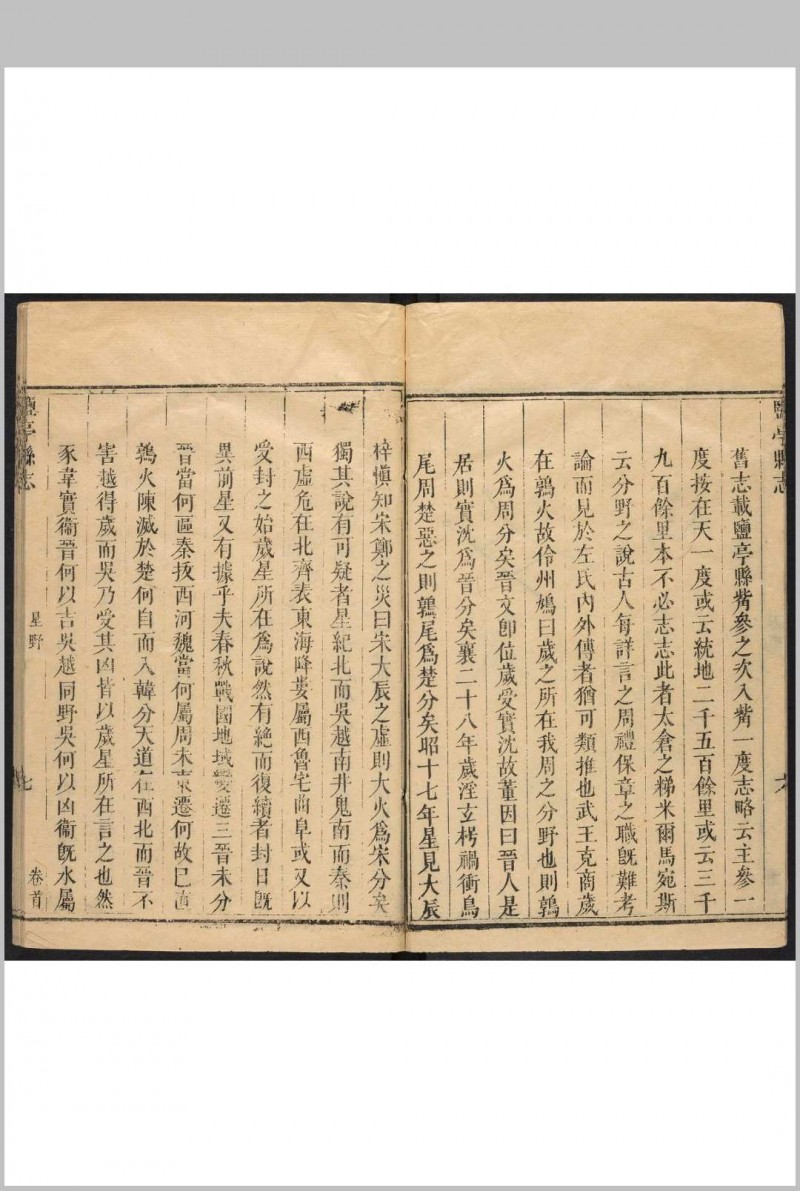 鹽亭縣志
舊志載鹽亭縣觜參之次入觜一度志略云主參一
度按在天一度或云統地二千五百餘里或云三千
九百餘里本不必志志此者太倉之稊米爾馬宛斯
云分野之說古人每詳言之周禮保章之職旣難考
論而見於左氏內外傳者猶可類推也武王克商歲
在鶉火故伶州鳩曰歲之所在我周之分野也則鶉
火爲周分矣晉文卽位歲受實沈故董因曰晉人是
居則實沈爲晉分矣襄二十八年歲淫玄枵禍衝鳥
尾周楚惡之則鶉尾爲楚分矣昭十七年星見大辰
梓愼知宋鄭之災曰宋大辰之虛則大火爲宋分矣
獨其說有可疑者星紀北而吳越南井鬼南而秦則
西虛危在北齊表東海降婁屬西魯宅曲阜或又以
受封之始歲星所在爲說然有絕而復續者封日旣
異前星又有據乎夫春秋戰國地域變遷三晉未分
晉當何區秦拔西河魏當何屬周未東遷何故已直
鶉火陳滅於楚何自而入韓分天道在西北而晉不
害越得歲而吳乃受其凶皆以歲星所在言之也然
豕韋實衞晉何以吉吳越同野吳何以凶衞旣水屬
鹽亭縣志
星野
七
卷首